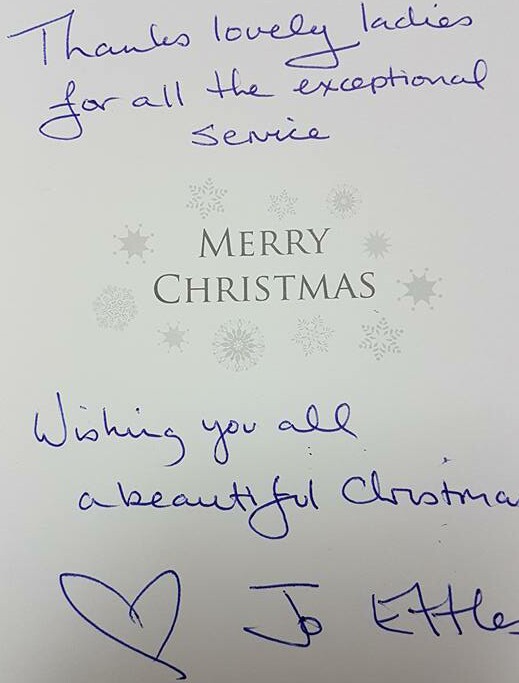 Thanks lovely ladies
for all the exceptional
service
MERRY
CHRISTMAS
Wishing you all
a beautiful Christma
Jo Ettle